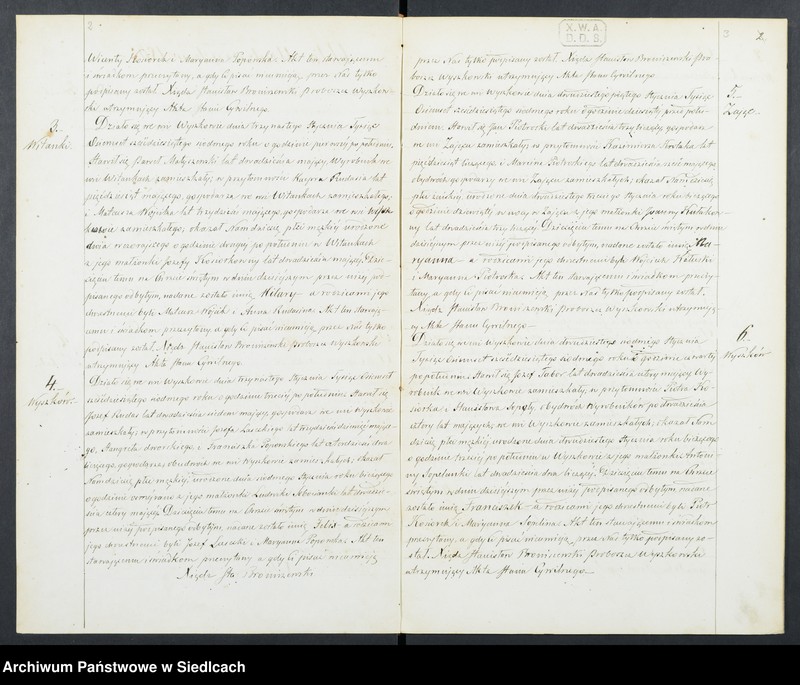 2
Wincenty Skonorek i Maryanna Popowska. Akt ten stawającemu
i świadkom przeczytany, a gdy ci pisać nieumieją, przez Nas tylko
podpisany został. Xiądz Stanisław Broniszewski Proboszcz Wyszkow
ski utrzymujący Akta Stanu Cywilnego.
3.
Witanki.
Działo się we wsi Wyszkowie dnia trzynastego Stycznia Tysiąc
Ośmset sześćdziesiątego siódmego roku o godzinie pierwszej po południu.
Stawił się Paweł Matyszewski lat dwadzieścia mający, Wyrobnik we
wsi Witankach zamieszkały, w przytomności Kacpra Rudasia lat
pięćdziesiąt mającego, gospodarza we wsi Witankach zamieszkałego,
i Mateusza Wójcika lat trzydzieści mającego gospodarza we wsi
zamieszkałego, okazał Nam dziecię płci męskiej urodzone
dnia wczorajszego o godzinie drugiej po południu w Witankach
z jego małżonki Józefy lat dwadzieścia mającej. Dzie
cięciu temu na Chrzcie świętym w dniu dzisiejszym przez niżej pod
pisanego odbytym, nadane zostało imię Hilary a rodzicami jego
chrzestnemi byli Mateusz Wójcik i Anna Rudasia. Akt ten stawają
cemu i świadkom przeczytany a gdy ci pisać nieumieją przez Nas tylko
podpisany został. Xiądz Stanisław Broniszewski Proboszcz Wyszkowski
utrzymujący Akta Stanu Cywilnego.
4.
Wyszków.
Działo się we wsi Wyszkowie dnia trzynastego Stycznia Tysiąc Ośmset
sześćdziesiątego siódmego roku o godzinie trzeciej po południu. Stawił się
Józef Rudaś lat dwadzieścia siedem mający, gospodarz we wsi Wyszkowie
zamieszkały, w przytomności Józefa Lusckiego lat trzydzieści mające
go, i Franciszka Popowskiego lat
gospodarza, obydwóch we wsi Wyszkowie zamieszkałych, okazał
Nam dziecię płci męskiej, urodzone dnia siódmego Stycznia roku bieżącego
o godzinie z jego małżonki Ludwiki lat dwadzie
ścia cztery mającej. Dziecięciu temu na Chrzcie świętym w dniu dzisiejszym
przez niżej podpisanego odbytym, nadane zostało imię Felix a rodzicami
jego chrzestnemi byli Józef Luscki i Maryanna Popowska. Akt ten
stawającemu i świadkom przeczytany a gdy ci pisać nieumieją
Xiądz Sta. Broniszewski
X. W. A.
D. D. S.
3
2
przez Nas tylko podpisany został. Xiądz Stanisław Broniszewski Pro
boszcz Wyszkowski utrzymujący Akta Stanu Cywilnego.
5.
Zając.
Działo się we wsi Wyszkowie dnia dwudziestego piątego Stycznia Tysiąc
Ośmset sześćdziesiątego siódmego roku o godzinie dziesiątej przed połu
dniem. Stawił się Jan Piotrocki lat dwadzieścia trzy liczący, gospodarz
we wsi Zającu zamieszkały, w przytomności Kazimierza lat
pięćdziesiąt liczącego i Marcina Piotrockiego lat dwadzieścia sześć mającego
obydwóch gospodarzy we wsi Zającu zamieszkałych; okazał Nam dziecię
płci żeńskiej, urodzone dnia dwudziestego trzeciego Stycznia roku bieżącego
o godzinie dziewiątej w nocy w Zającu z jego małżonki Joanny
lat dwadzieścia trzy liczącej. Dziecięciu temu na Chrzcie świętym w dniu
dzisiejszym przez niżej podpisanego odbytym, nadane zostało imię Ma
ryanna a rodzicami jego chrzestnemi byli Wojciech
i Maryanna Piotrocka. Akt ten stawającemu i świadkom przeczy
tany, a gdy ci pisać nieumieją przez Nas tylko podpisany został.
Xiądz Stanisław Broniszewski Proboszcz Wyszkowski utrzymują
cy Akta Stanu Cywilnego.
6.
Wyszków
Działo się we wsi Wyszkowie dnia dwudziestego siódmego Stycznia
Tysiąc Ośmset sześćdziesiątego siódmego roku o godzinie czwartej
po południu. Stawił się Józef Tabor lat dwadzieścia cztery mający Wy
robnik we wsi Wyszkowie zamieszkały, w przytomności Piotra
i Stanisława obydwóch Wyrobników po dwadzieścia
cztery lat mających, we wsi Wyszkowie zamieszkałych; okazał Nam
dziecię płci męskiej, urodzone dnia dwudziestego Stycznia roku bieżącego
o godzinie trzeciej po południu w Wyszkowie z jego małżonki Antoni
ny lat dwadzieścia dwa liczącej. Dziecięciu temu na Chrzcie
świętym w dniu dzisiejszym przez niżej podpisanego odbytym, nadane
zostało imię Franciszek a rodzicami jego chrzestnemi byli Piotr
i Maryanna. Akt ten stawającemu i świadkom
przeczytany, a gdy ci pisać nieumieją, przez Nas tylko podpisany zo
stał. Xiądz Stanisław Broniszewski Proboszcz Wyszkowski
utrzymujący Akta Stanu Cywilnego.
Archiwum Państwowe w Siedlcach